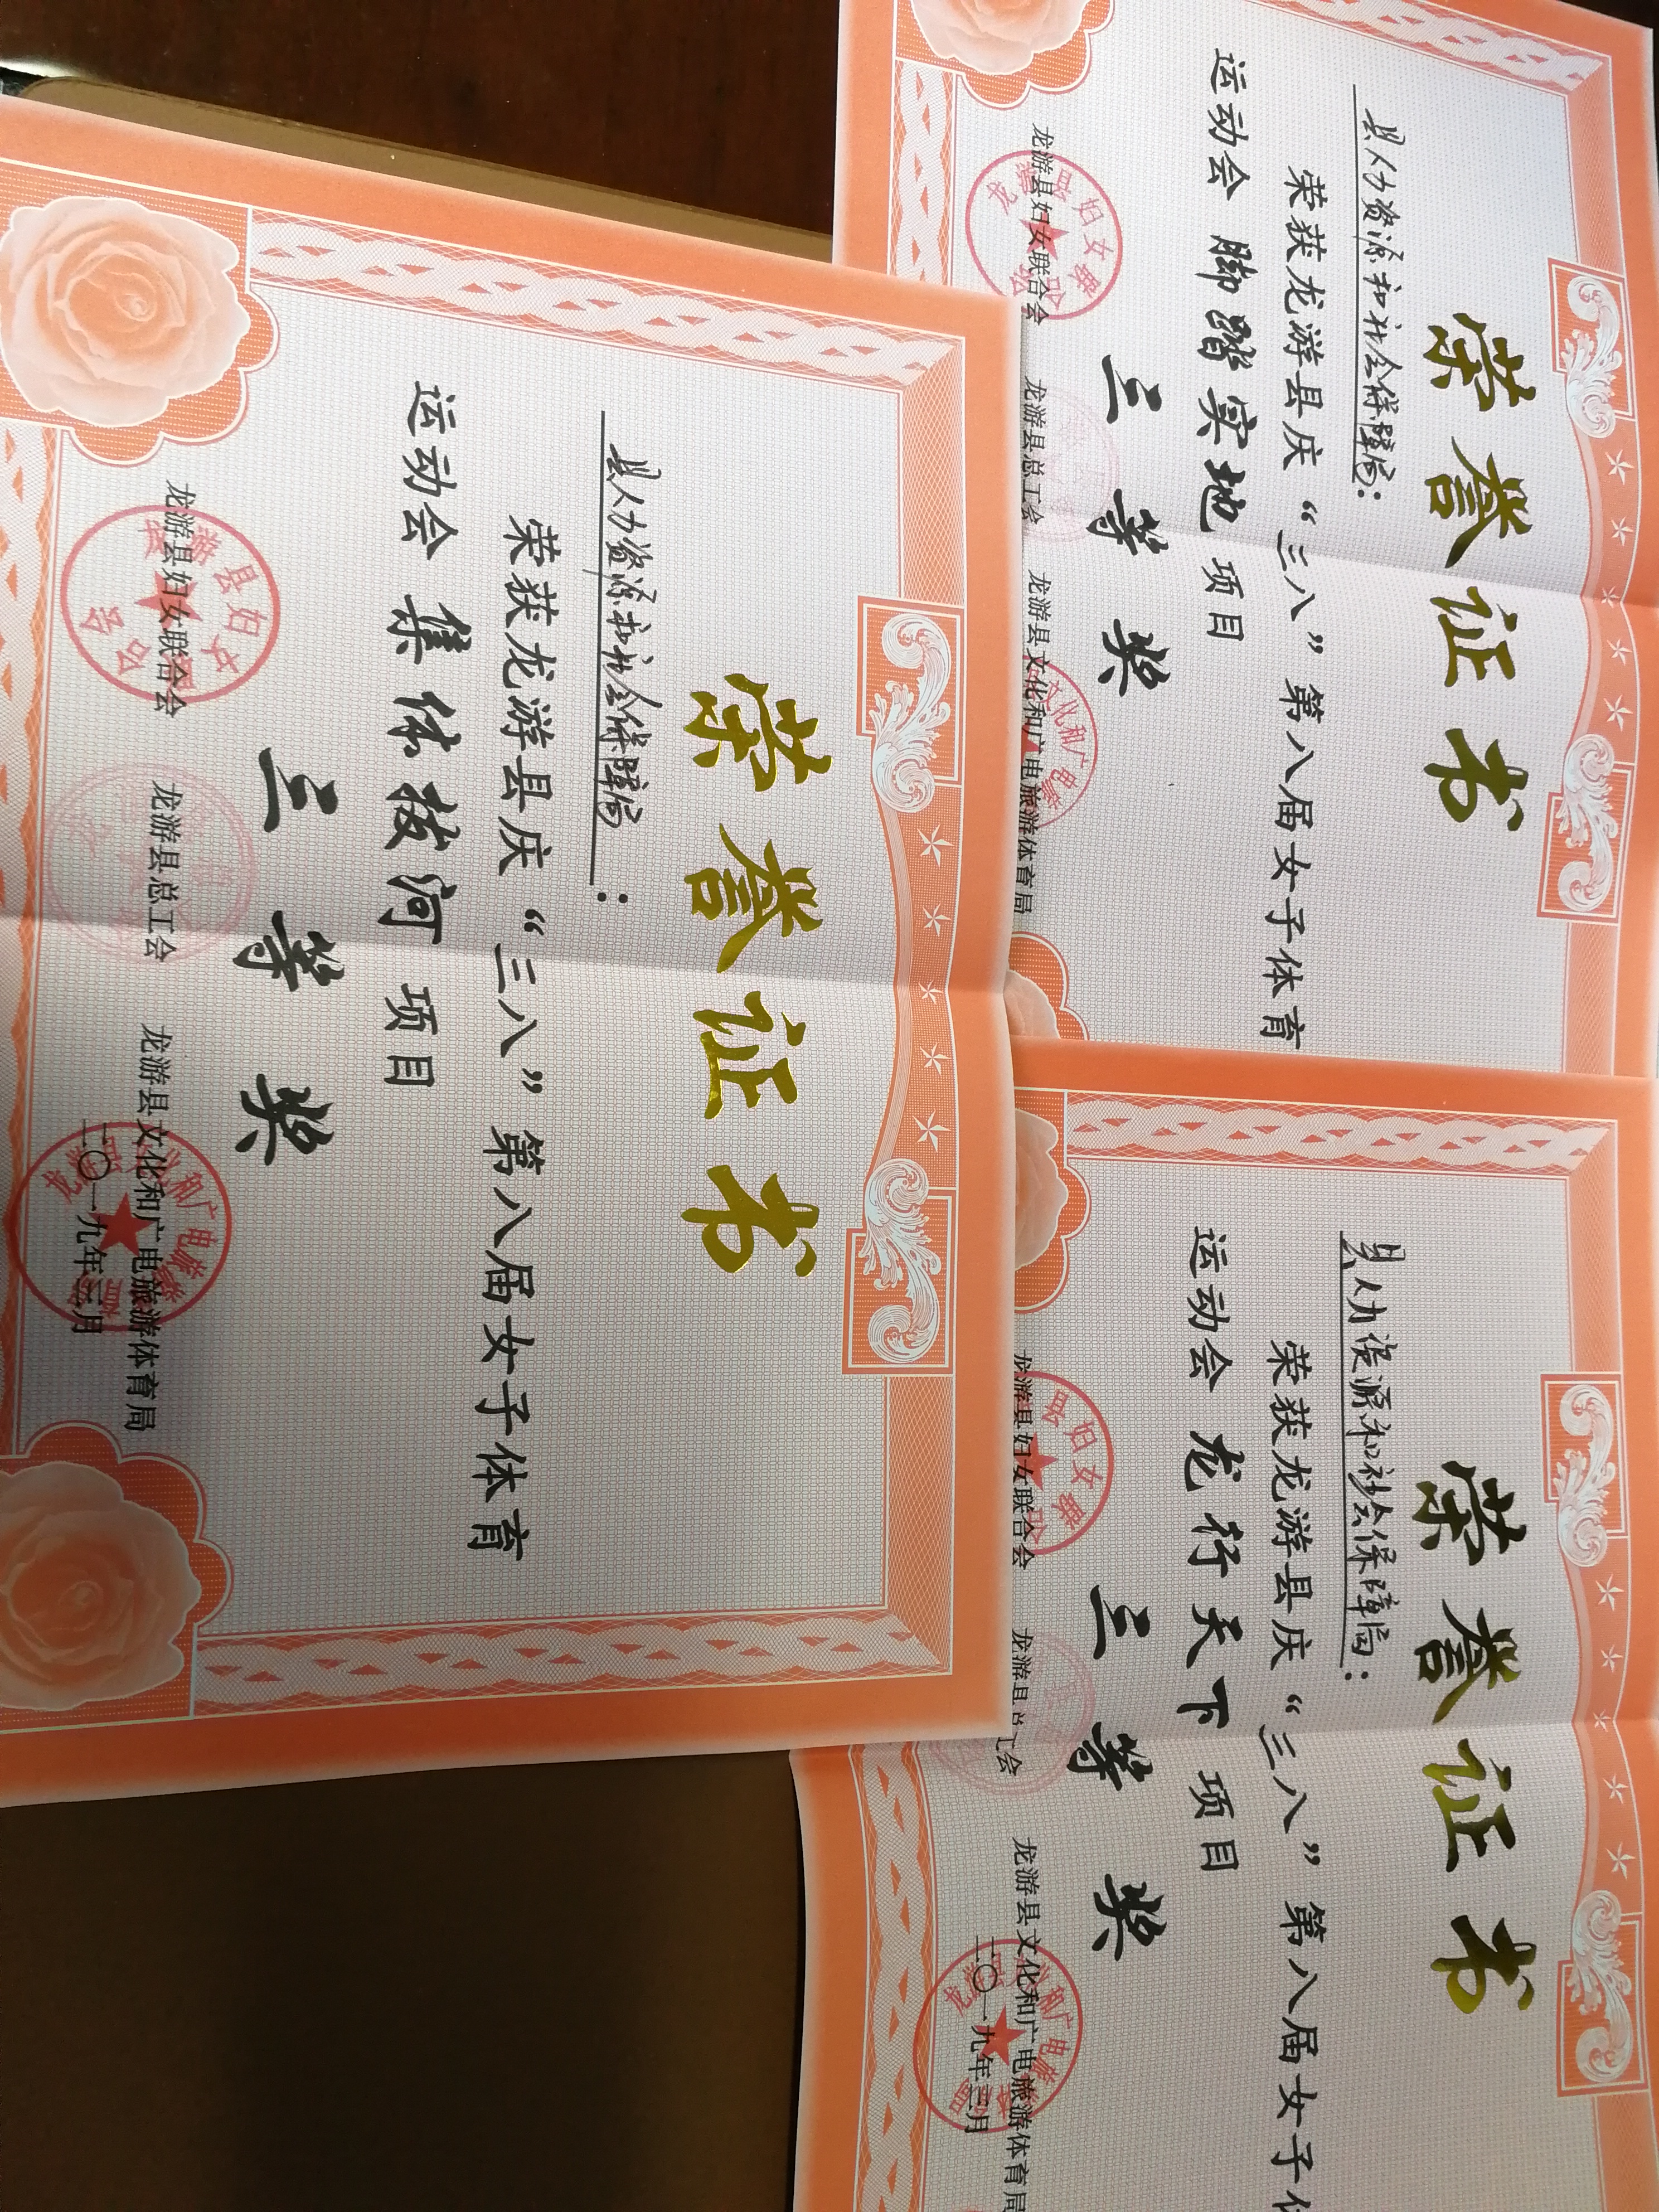 荣誉证书
县人力资源和社会保障局：
荣获龙游县庆“三八”第八届女子体育
运动会 脚踏实地 项目
三等奖
龙游县妇女联合会 龙游县总工会 龙游县文化和广电旅游体育局
荣誉证书
县人力资源和社会保障局：
荣获龙游县庆“三八”第八届女子体育
运动会 集体拔河 项目
三等奖
龙游县妇女联合会 龙游县总工会 龙游县文化和广电旅游体育局
二〇一九年三月
荣誉证书
县人力资源和社会保障局：
荣获龙游县庆“三八”第八届女子体
运动会 龙行天下 项目
三等奖
龙游县妇女联合会 龙游县总工会 龙游县文化和广电旅游体育局
二〇一九年三月